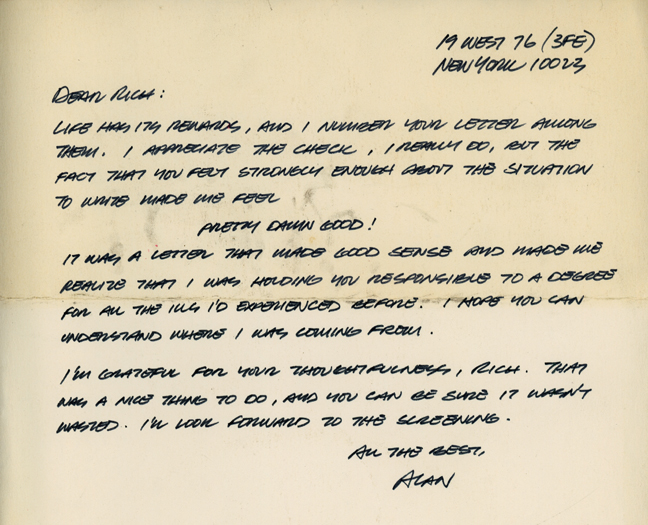 19 WEST 76 (3FE)
NEW YORK 10023
DEAR RICH:
LIFE HAS ITS REWARDS, AND I NUMBER YOUR LETTER AMONG
THEM. I APPRECIATE THE CHECK, I REALLY DO, BUT THE
FACT THAT YOU FELT STRONGLY ENOUGH ABOUT THE SITUATION
TO WRITE MADE ME FEEL
PRETTY DAMN GOOD!
IT WAS A LETTER THAT MADE GOOD SENSE AND MADE ME
REALIZE THAT I WAS HOLDING YOU RESPONSIBLE TO A DEGREE
FOR ALL THE ILLS I'D EXPERIENCED BEFORE. I HOPE YOU CAN
UNDERSTAND WHERE I WAS COMING FROM.
I'M GRATEFUL FOR YOUR THOUGHTFULNESS, RICH. THAT
WAS A NICE THING TO DO, AND YOU CAN BE SURE IT WASN'T
WASTED. I'LL LOOK FORWARD TO THE SCREENING.
ALL THE BEST,
ALAN